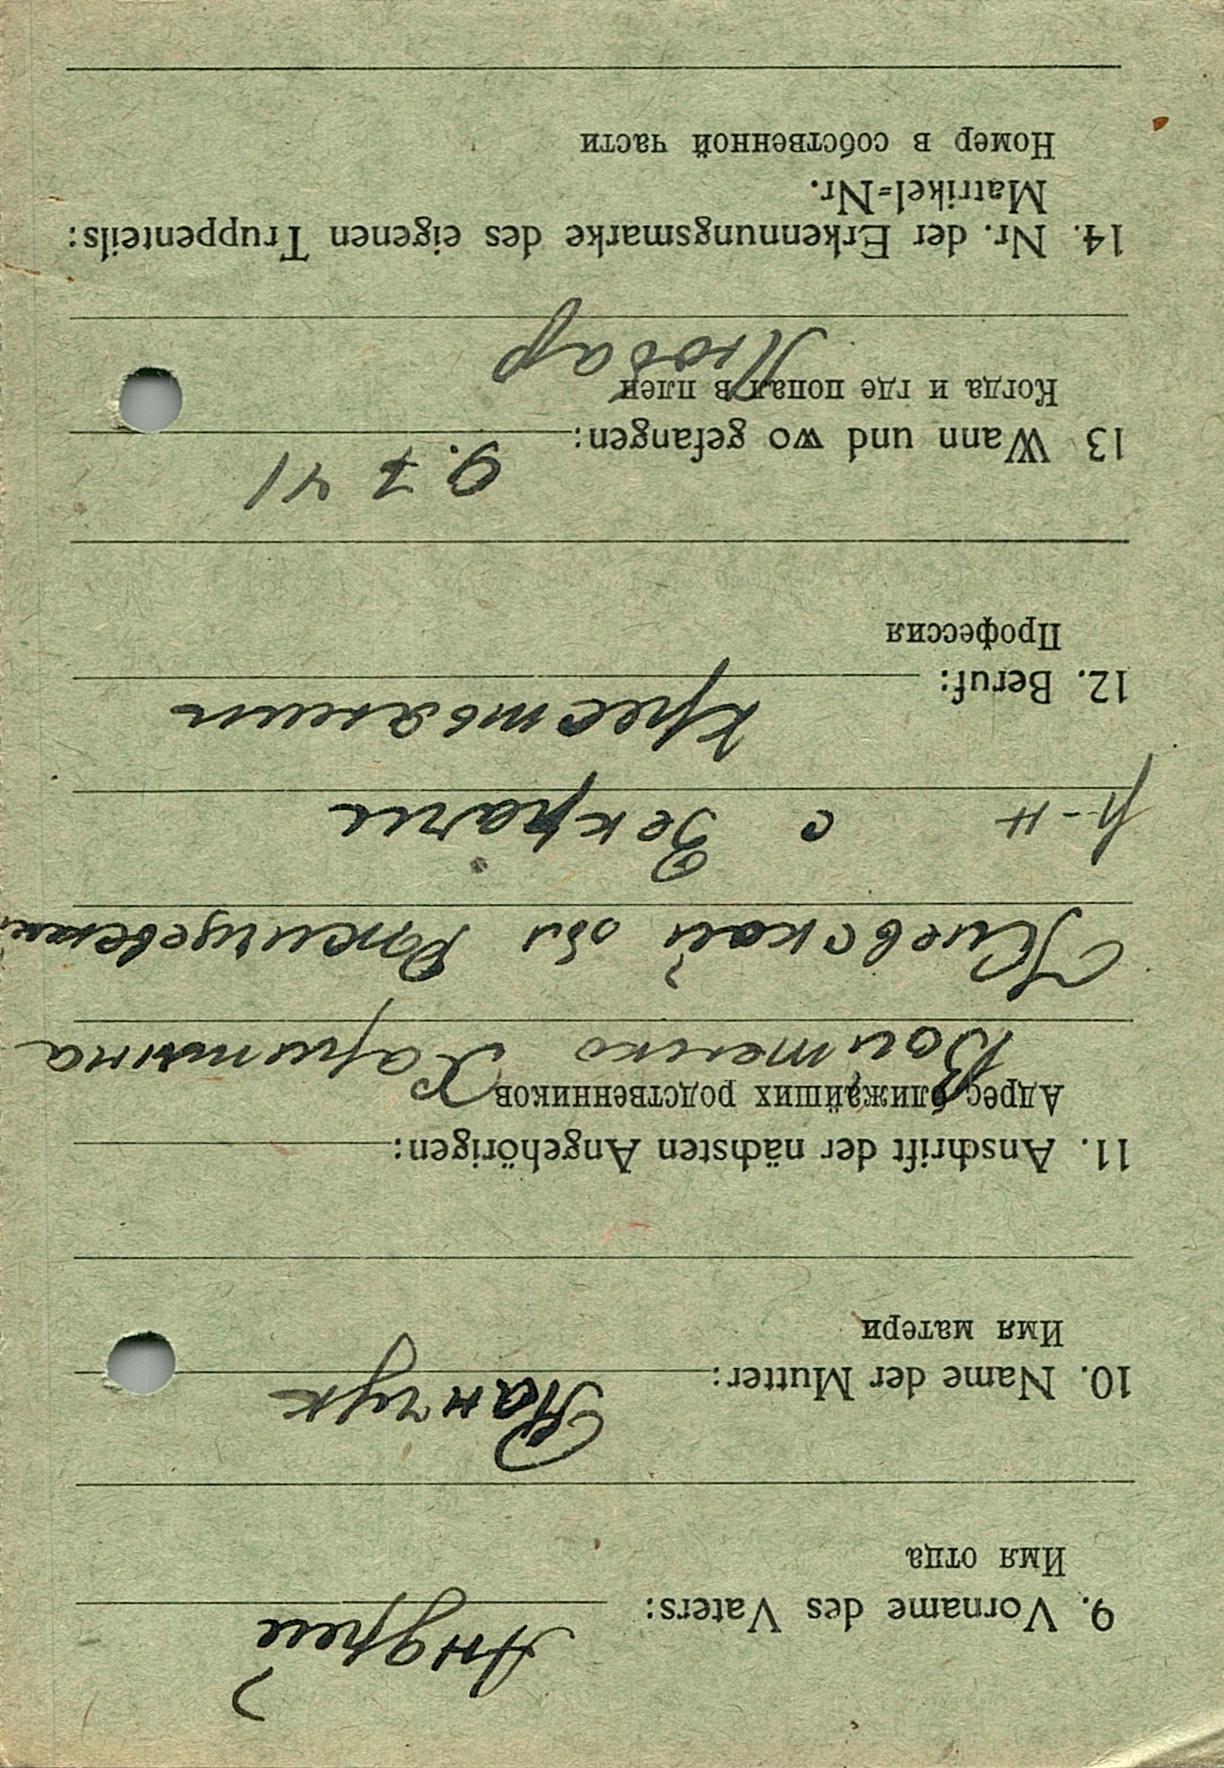 9. Vorname des Vaters: Андрей
Имя отца
10. Name der Mutter: Панчук
Имя матери
11. Anschrift der nächsten Angehörigen:
Адрес ближайших родственников
Войтенко Харитина
Киевской обл
р-н с
12. Beruf: крестьянин
Профессия
13 Wann und wo gefangen: 9. 7 41
Когда и где попал в плен
Любар
14. Nr. der Erkennungsmarke des eigenen Truppenteils:
Matrikel=Nr.
Номер в собственной части